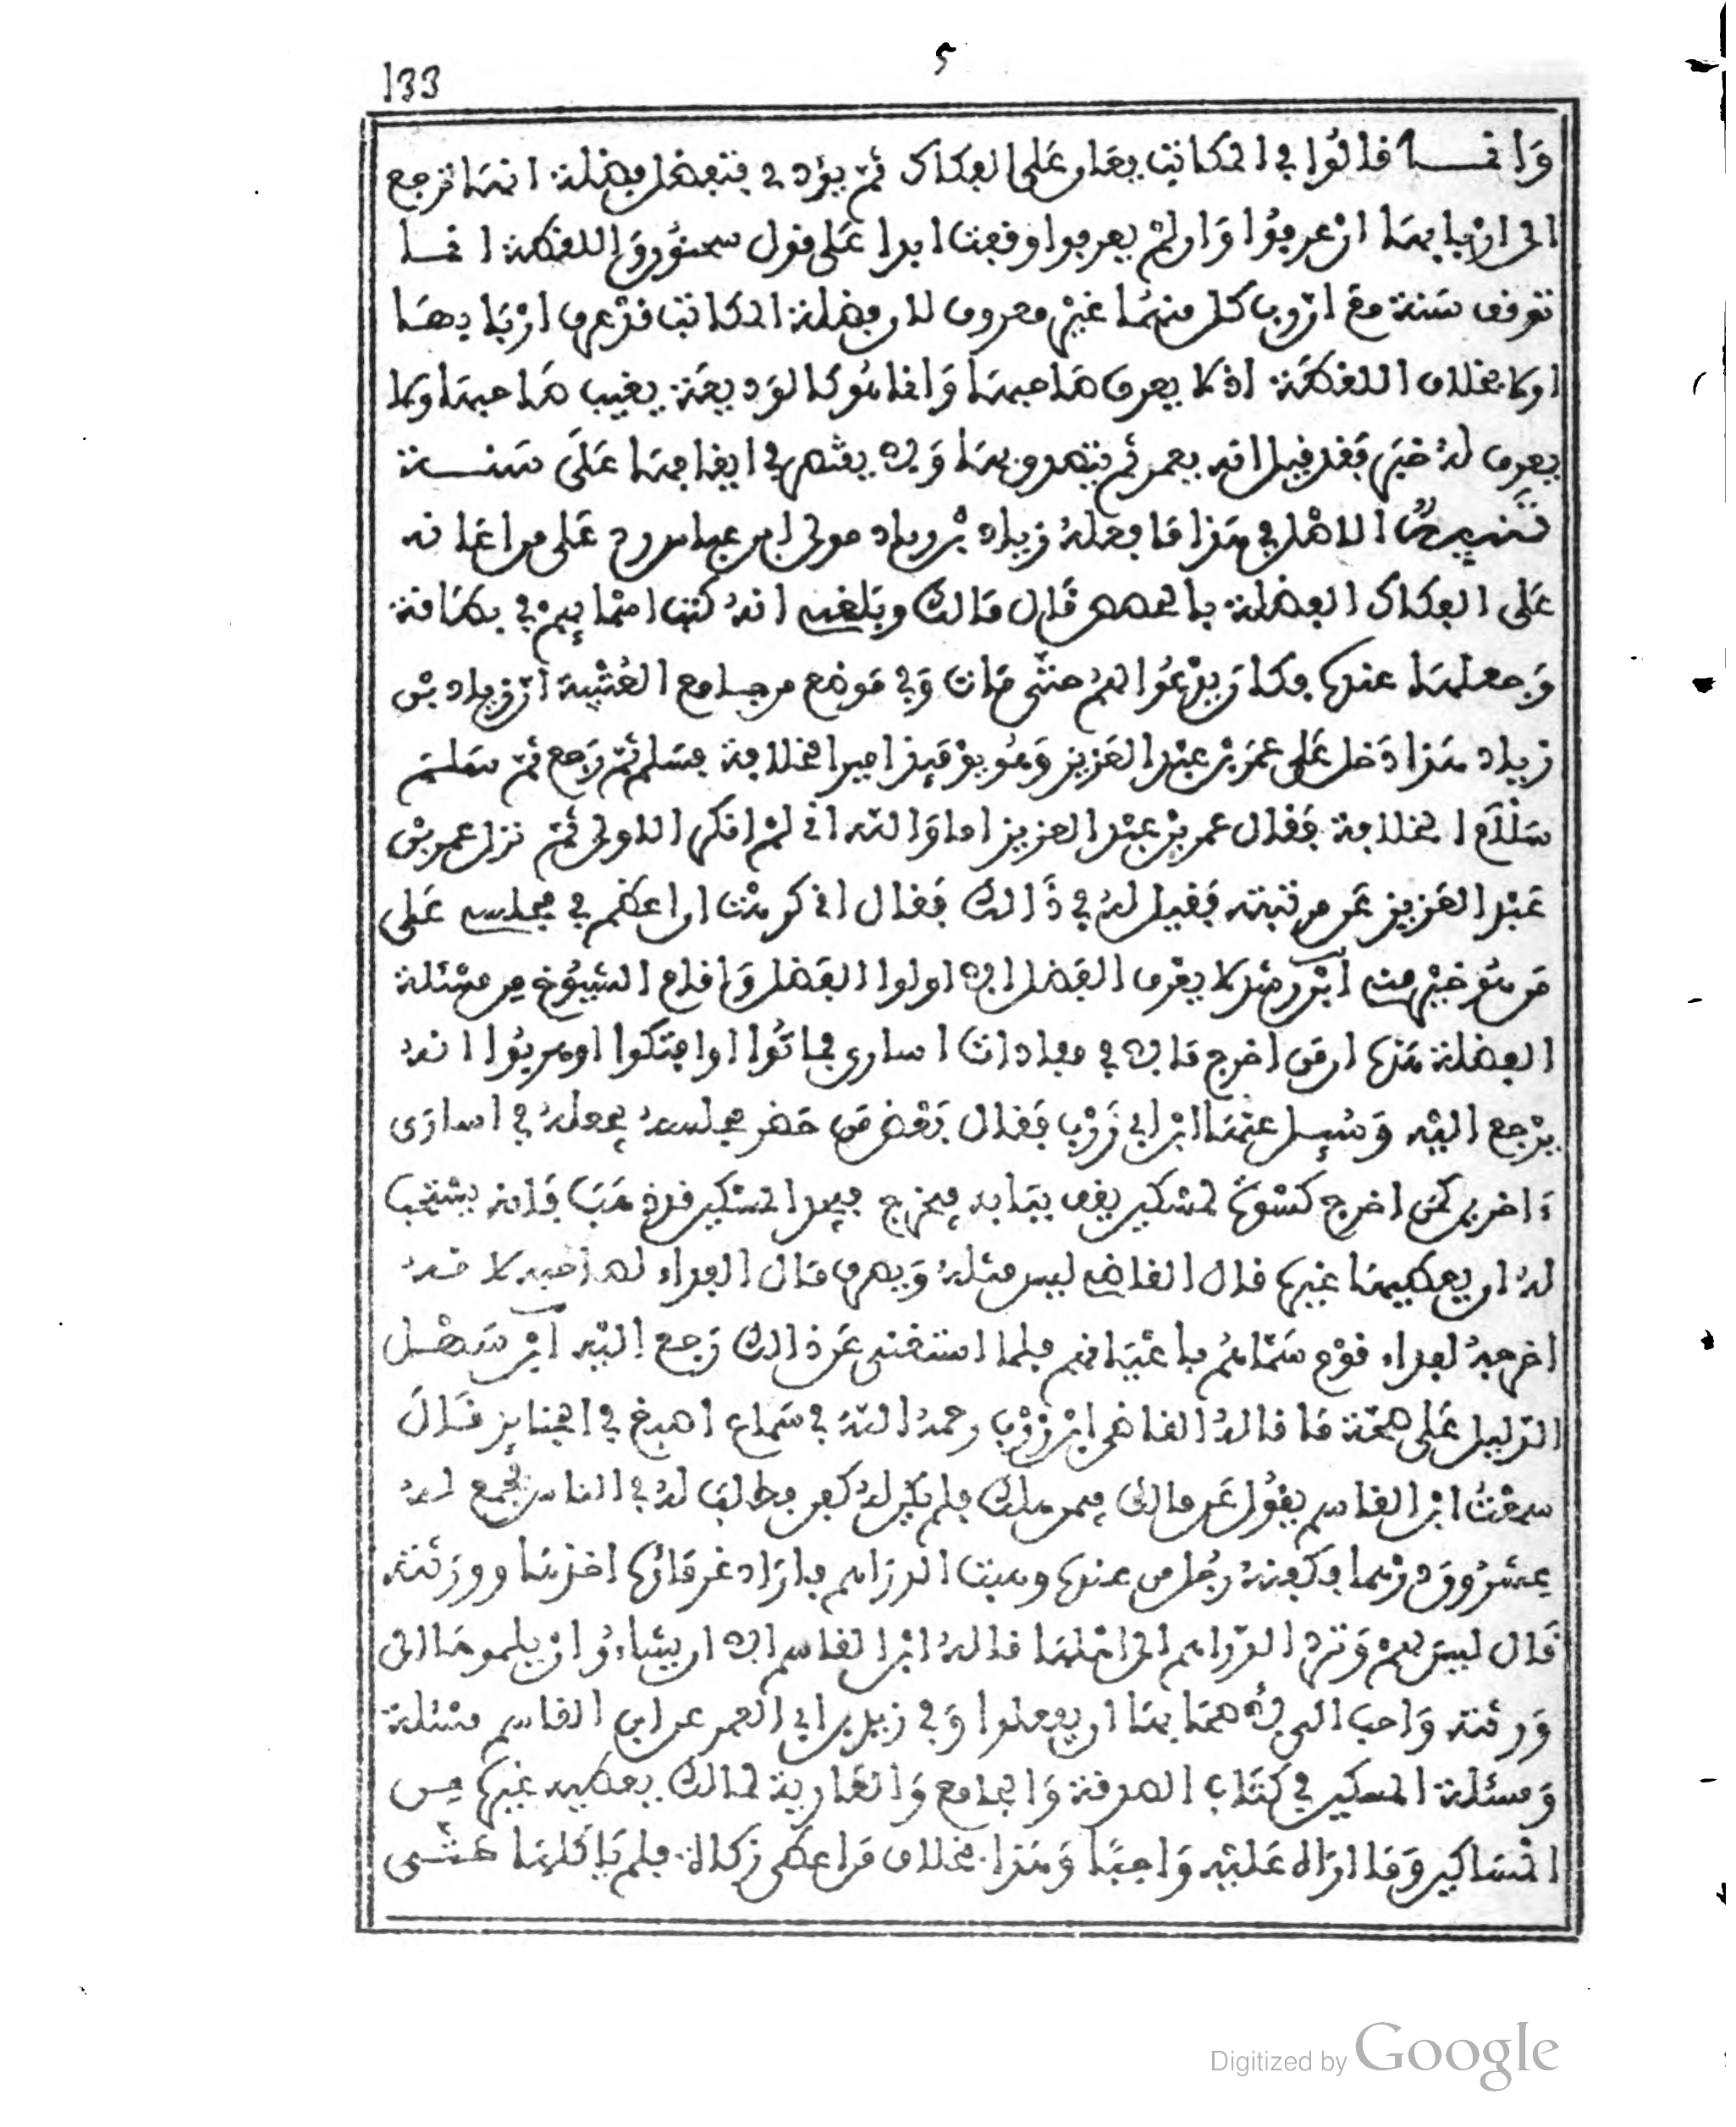 133
5
وَانمـــا قالُوا في المكاتب يعان على الفكاك ثم يؤدي فتفضل فضلة انها ترجع
الى ارْبابها ان عرفُوا وَان لمْ يعرفوا وقفت ابدا عَلى قول سحنُون وَاللقطة انمــا
توقف سَنة مَعَ انّ رب كل منهمَا غيْر معروف لان فضلة المكاتب قدْ عرف ارْبَابهَا
اولا بخلاف اللقطَة اذ لا يعرف صَاحبهَا وَانما هُو كالوَديعَة يغيب صَاحبهَا ولا
يعرف لهُ خبَر فَقد قيل انه يعمر ثم يتصدق بهَا وَلم يقتصر في ايقافهَا عَلَى سَنـــة
تَنبِيهٌ الاصْل في هَذا مَا فعَلهُ زياد بْن زياد مولى ابن عباس رد عَلى من اعَانه
عَلى الفكاك الفضلة بالحصص قَال مَالك وبَلغني انهُ كتب اسْمَاءهمْ في بطَاقة
وَجعلهَا عندهُ فكان يدْعُو الهمْ حتّى مَات وَفي مَوضع من جامع العُتْبية انّ زياد بْن
زياد هَذا دَخل عَلى عمَر بْن عبْد العَزيز وَهُو يوْمَئِذ امير الخلافة فسَلم ثمّ رَجع ثمّ سَلـم
سَلَامَ الخلافة فَقال عمر بْن عبْد العزيز اما وَالله اني لمْ انكر الاولى ثمّ نزل عمر بْن
عَبْد العَزيز عَن مرتبته فَقيل لهُ في ذَالك فَقال اني كرهْت ان اعظم في مجلسي عَلى
مَن هُو خيْر مني ابْن رشد لا يعْرف الفَضل الا اولوا الفَضل وَاقام الشيُوخ من مسْئلة
الفضلة هَذه ان مَن اخرج مَالا في مفادات اسارى فماتُوا او افتكوا او هربُوا انهُ
يرْجع اليْه وَسُئِل عنهَا ابْن ابي زَرْب فَقال بَعْض مَن حَضر مجلسهُ يجعلهُ في اسارَى
ءَاخرين كمَن اخرج كسْوَة لمسْكين يقف ببَابه فيخرج فيجد المسْكين قد ذهَبَ فَانه يسْتحب
لهُ ان يعطيهَا غيرهُ قال القاضي ليس مثلهُ وَيصرف مَال الفداء لصَاحبه لا نـهُ
اخرجهُ لفداء قوْم سَمّاهُم باعْيَانهم فلما استغنى عَن ذالك رَجع اليْه ابْن سَهْـل
الدّليل عَلى صحّة مَا قالهُ القاضي ابْن زرْب رحمهُ اللهُ في سَماع اصْبغ في الجنايز قـالَ
سمعْتُ ابْن القاسم يقُول عَن مالك فيمن هلك فلم يكن لهُ كفن فطالبَ لهُ في الناس فجمع لـهُ
عِشْرُون درْهما فكفنهُ رجُل من عندهِ وبقيت الدرَاهم فارَاد غرمَاؤهُ اخذهَا وورَثتهُ
قَال ليسَ لهمْ وَترد الدّرَاهم الى اهْلهَا قالهُ ابْن القاسم الا ان يشاءُوا انْ يسلموهَا الى
وَرثته وَاحب الي لاصْحَابهَا ان يفعلوا وَفي زيد بن ابي الغمر عن ابن القاسم مسْئلة
وَمسئلة المسكين في كتَاب الصدقة وَالجامع وَالعَارية لمالك يعطيه غيرهُ مـن
المسَاكين وَمَا ارَاه عَليْه وَاجبًا وَهَذا بخلاف مَن اعطى زكاة فلم يَاكلهَا حَتّـى
Digitized by Google